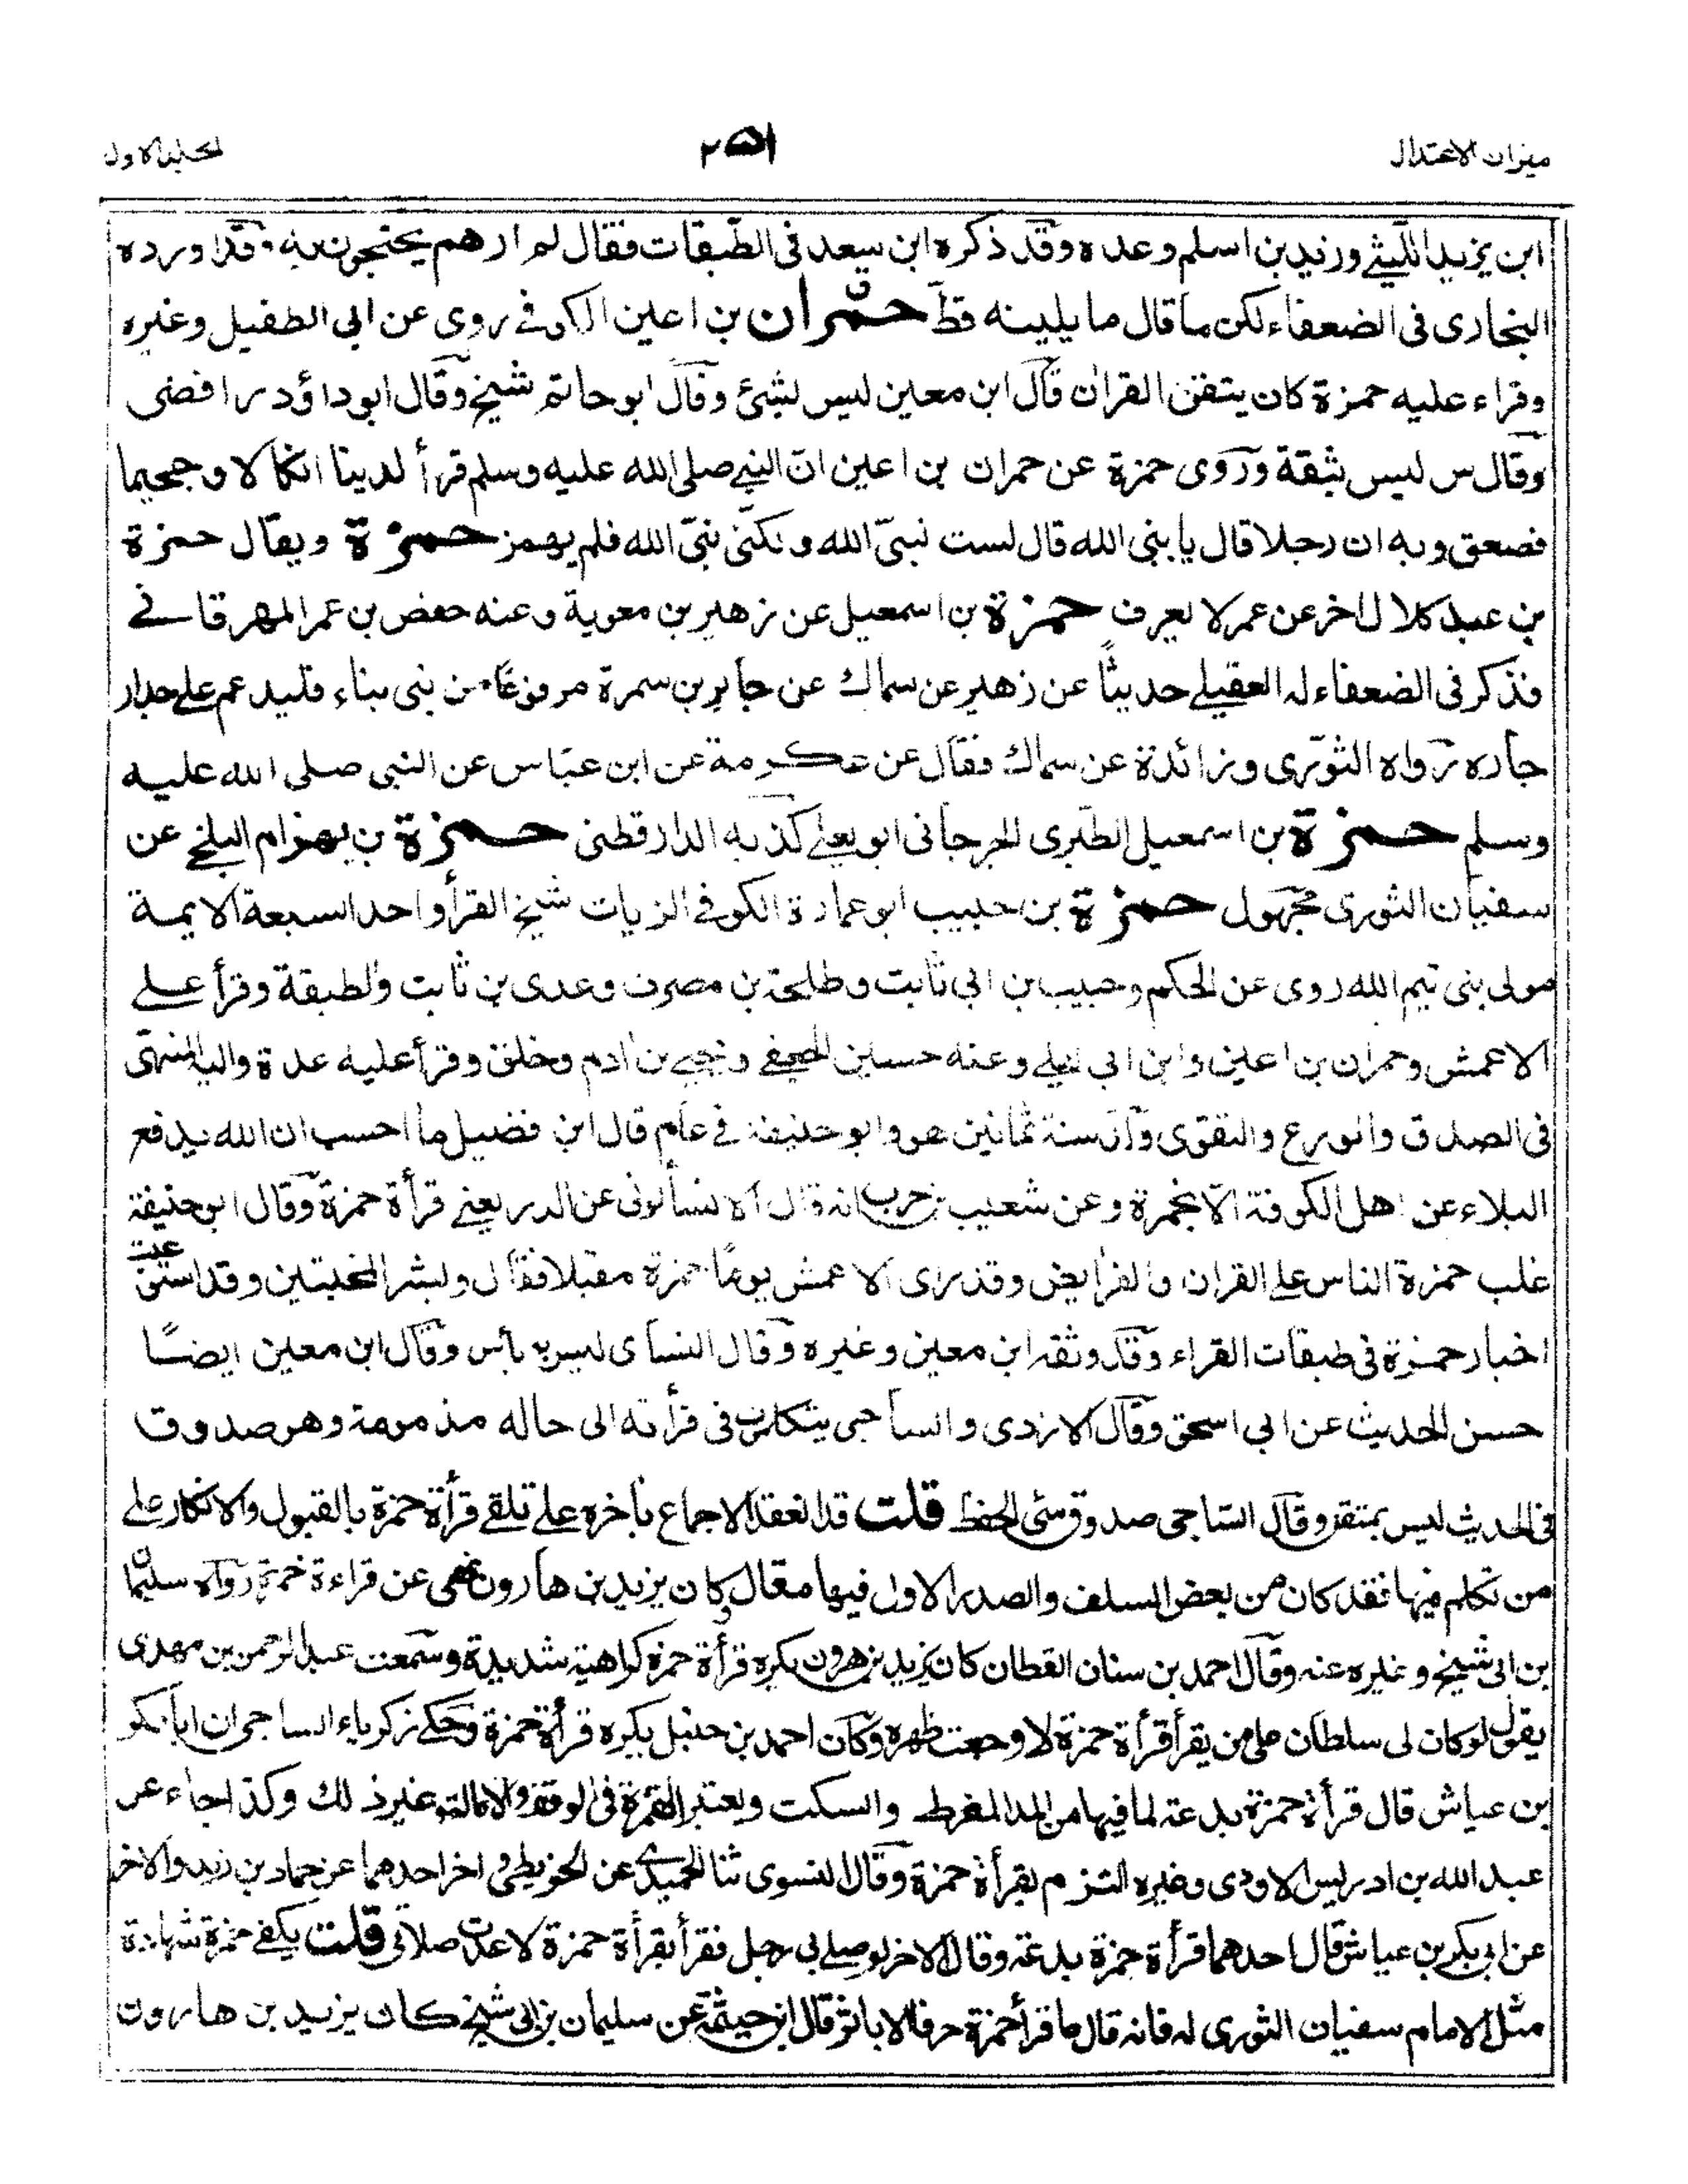 ميزان الاعتدال
٢٥١
المجلد الاول
ابن يزيد الليثي وزيد بن اسلم وعده وقد ذكره ابن سعد فى الطبقات فقال لم ارهم يحتجون به وقد اورده
البخارى فى الضعفاء لكن ما قال ما يلينه قط حمران بن اعين الكوفے روى عن ابى الطفيل وغيره
وقراء عليه حمزة كان يتقن القران قال ابن معين ليس لبشئ وقال ابو حاتم شيخ وقال ابو داؤد رافضى
وقال س ليس بثقة وروى حمزة عن حمران بن اعين ان النبى صلى الله عليه وسلم قرأ لدينا انكالا وجحيما
فصعق وبه ان رجلا قال يا بنى الله قال لست نبىّ الله ولكنى نبىّ الله فلم يهمز حمزة ويقال حمزة
بن عبد كلال اخر عن عمر لا يعرف حمزة بن اسمعيل عن زهير بن معوية وعنه حفص بن عمر المهرقانے
فذكر فى الضعفاء له العقيلے حديثاً عن زهير عن سماك عن جابر بن سمرة مرفوعًا من بنى بناء فليدعم على جدار
جاره رواه الثورى وزائدة عن سماك فقال عن عكرمة عن ابن عباس عن النبى صلى الله عليه
وسلم حمزة بن اسمعيل الطبرى الجرجانى ابو يعلے كذبه الدارقطنى حمزة بن بهرام البلخے عن
سفيان الثورى مجهول حمزة بن حبيب ابو عمارة الكوفے الزيات شيخ القرأ واحد السبعة الايمة
مولى بنى تيم الله روى عن الحكم وحبيب بن ابى ثابت وطلحة بن مصرف وعدى بن ثابت والطبقة وقرأ علے
الاعمش وحمران بن اعين وابن ابى ليلے وعنه حسين الجعفے ويحيے بن ادم وخلق وقرأ عليه عدة واليه المنتهى
فى الصدق والورع والتقوى ولد سنة ثمانين هو وابو حنيفة فے عام قال ابن فضيل ما احسب ان الله يدفع
البلاء عن اهل الكوفة الا بحمزة وعن شعيب بن حرب انه قال الا تسألونى عن الدر يعنے قرأة حمزة وقال ابو حنيفة
غلب حمزة الناس علے القران والفرايض وقد راى الاعمش يومًا حمزة مقبلا فقال وبشر المخبتين وقد استوعبت
اخبار حمزة فى طبقات القراء وقد وثقه ابن معين وغيره وقال النساى ليس به بأس وقال ابن معين ايضًا
حسن الحديث عن ابى اسحق وقال الازدى والساجى يتكلمون فى قرأته الى حاله مذمومة وهو صدوق
فى الحديث ليس بمتقن وقال الساجى صدوق سئى الحفظ قلت قد انعقد الاجماع بأخره علے تلقے قرأة حمزة بالقبول والانكار علے
من تكلم فيها فقد كان من بعض السلف والصدر الاول فيها مقال كان يزيد بن هارون ينهى عن قراءة حمزة رواه سليمان
بن ابى شيخ وغيره عنه وقال احمد بن سنان القطان كان يزيد بن هرون يكره قرأة حمزة كراهية شديدة وسمعت عبد الرحمن بن مهدى
يقول لو كان لى سلطان على من يقرأ قرأة حمزة لاوجعت ظهره وكان احمد بن حنبل يكره قرأة حمزة وحكے زكرياء الساجى ان ابا بكر
بن عياش قال قرأة حمزة بدعة لما فيها من المد المفرط والسكت وغير ذلك وكذا جاء عن
عبد الله بن ادريس الاودى وغيره التبرم بقرأة حمزة وقال الفسوى ثنا الحميدے عن اخر احدهما عن حماد بن زيد والاخر
عن ابى بكر بن عياش قال احدهما قرأة حمزة بدعة وقال الاخر لو صلے بى رجل فقرأ بقرأة حمزة لاعدت صلاتى قلت يكفے حمزة شهادة
مثل الامام سفيان الثورى له فانه قال ما قرأ حمزة حرفا الا باثر قال ابن خيثمة عن سليمان بن ابى شيخ كان يزيد بن هارون